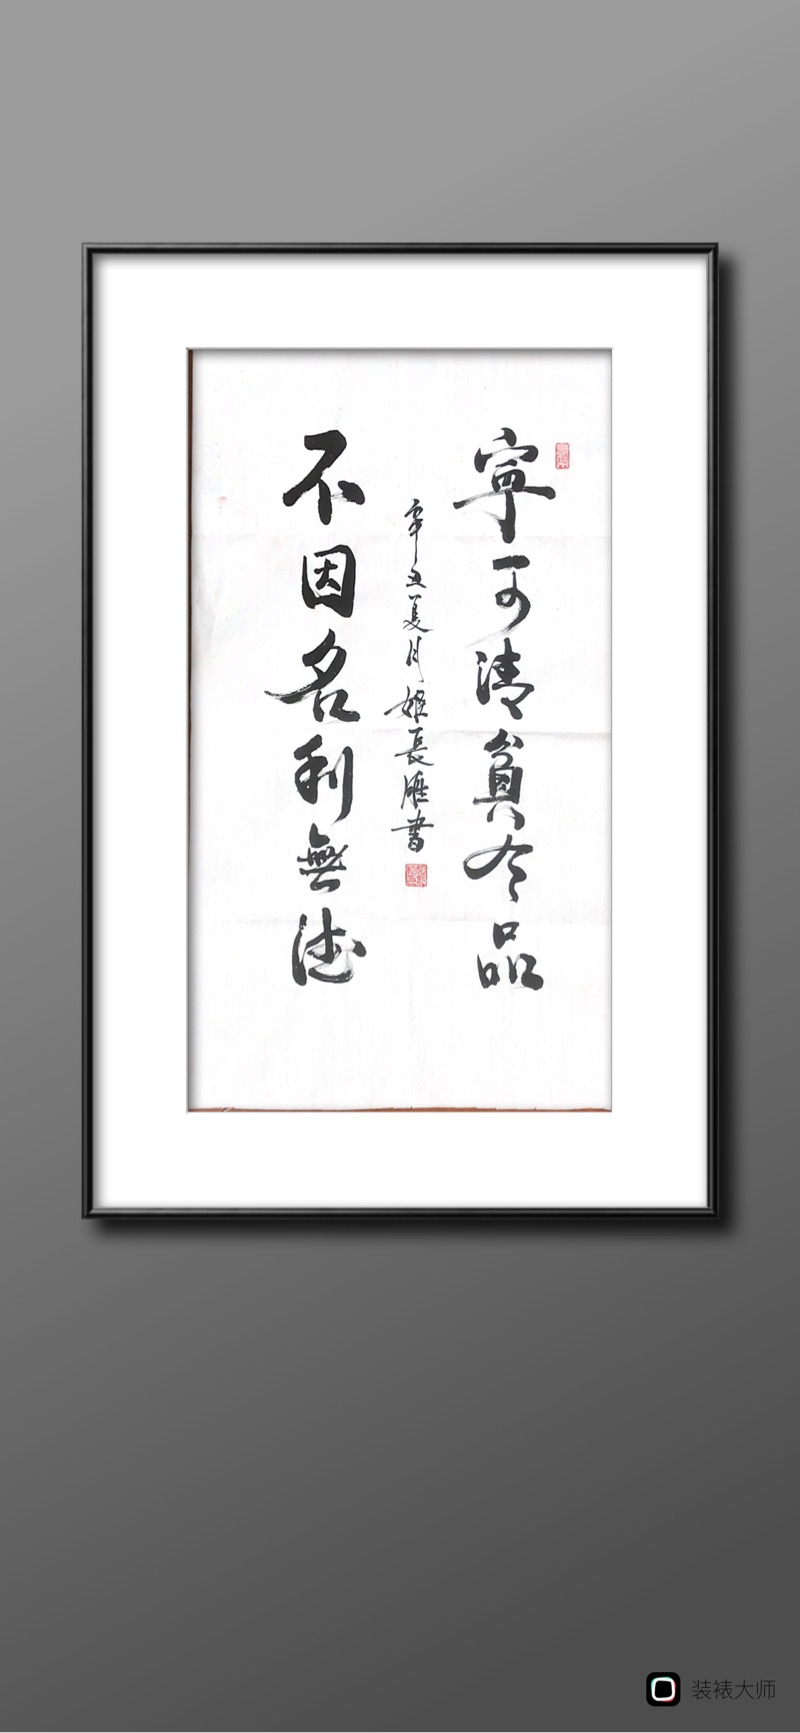 寧可清貧令品
辛丑夏月姬長雁書
不因名利無德
装裱大师